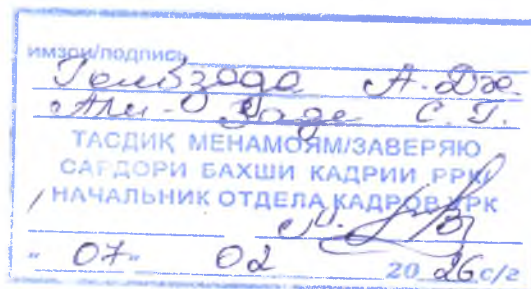 имзои/подпись
А. Дж.
Али-Заде С. Г.
ТАСДИҚ МЕНАМОЯМ/ЗАВЕРЯЮ
САРДОРИ БАХШИ КАДРИИ РРК/
НАЧАЛЬНИК ОТДЕЛА КАДРОВ УРК
"07" 02 2026 с/г